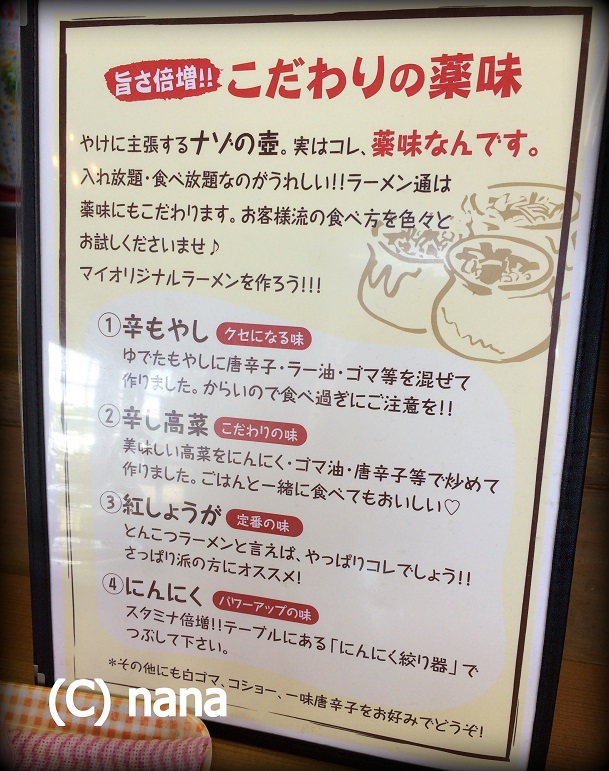 旨さ倍増!! こだわりの薬味
やけに主張するナゾの壺。実はコレ、薬味なんです。
入れ放題・食べ放題なのがうれしい!!ラーメン通は
薬味にもこだわります。お客様流の食べ方を色々と
お試しくださいませ♪
マイオリジナルラーメンを作ろう!!!
①辛もやし クセになる味
ゆでたもやしに唐辛子・ラー油・ゴマ等を混ぜて
作りました。からいので食べ過ぎにご注意を!!
②辛し高菜 こだわりの味
美味しい高菜をにんにく・ゴマ油・唐辛子等で炒めて
作りました。ごはんと一緒に食べてもおいしい♡
③紅しょうが 定番の味
とんこつラーメンと言えば、やっぱりコレでしょう!!
さっぱり派の方にオススメ!
④にんにく パワーアップの味
スタミナ倍増!!テーブルにある「にんにく絞り器」で
つぶして下さい。
*その他にも白ゴマ、コショー、一味唐辛子をお好みでどうぞ!
(C) nana